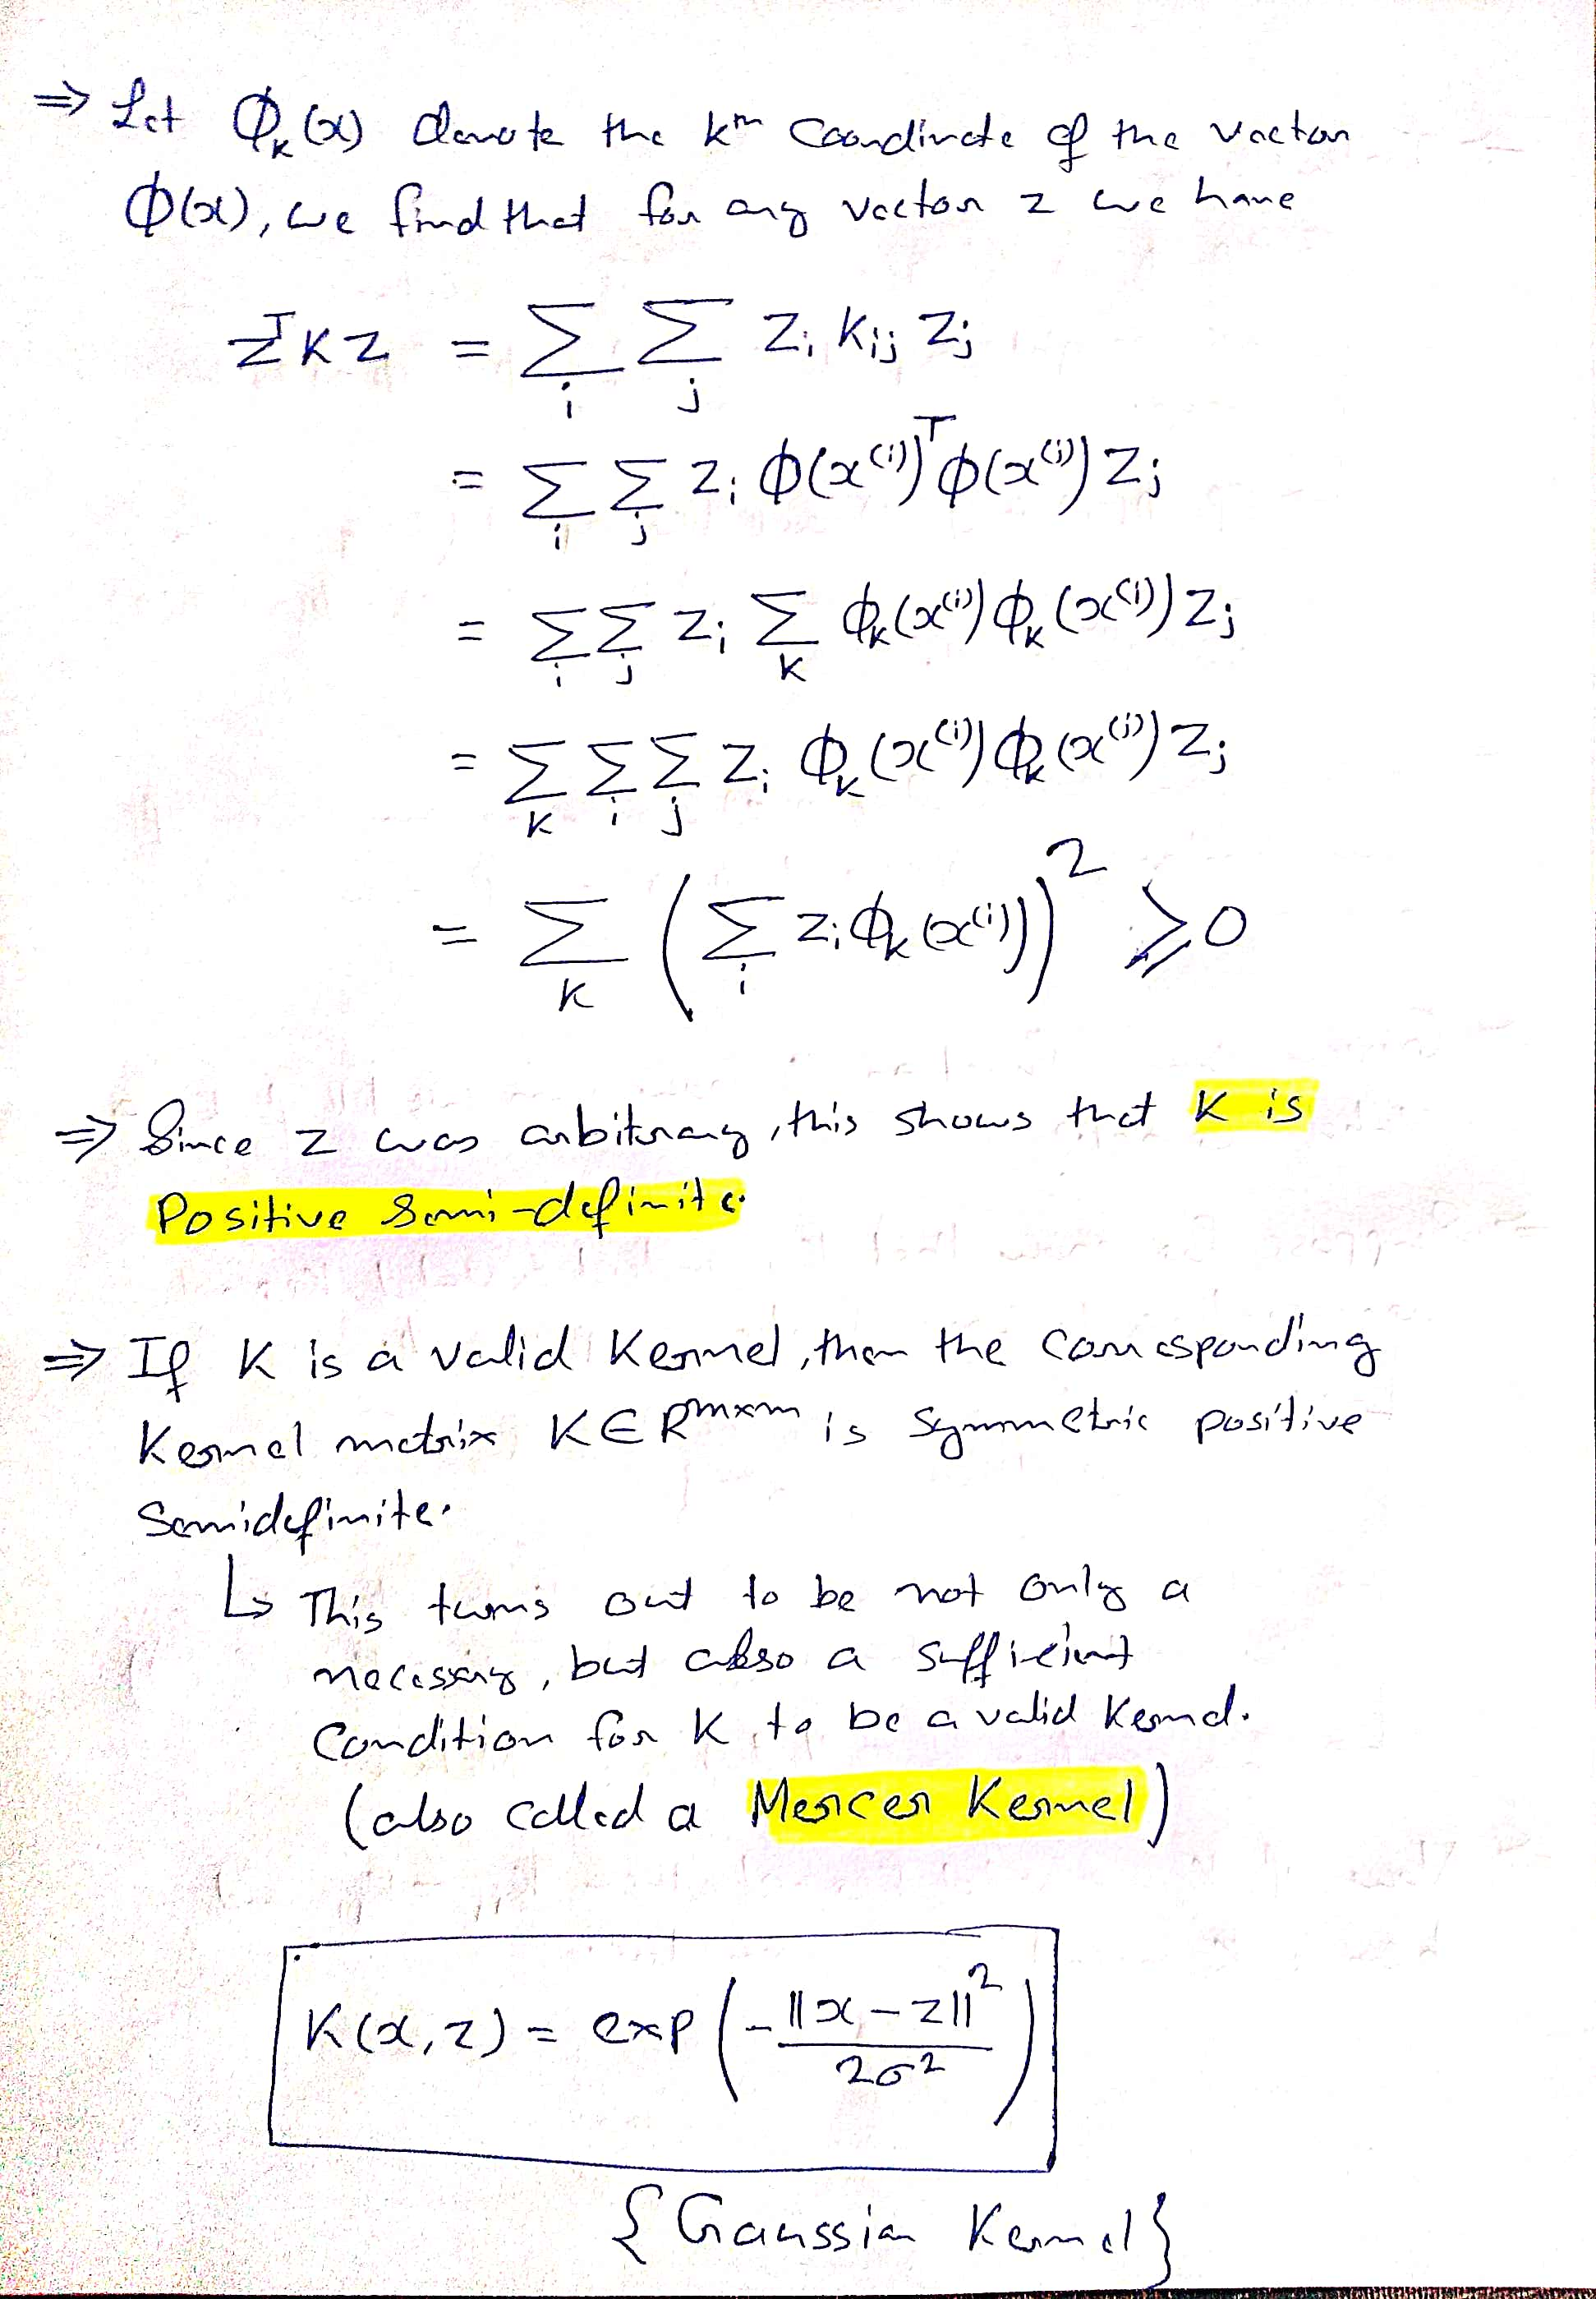 ⇒ Let Φₖ(x) denote the kᵗʰ Coordinate of the vector
Φ(x), we find that for any vector z we have
zᵀKz = Σᵢ Σⱼ zᵢ Kᵢⱼ zⱼ
= Σᵢ Σⱼ zᵢ Φ(x⁽ⁱ⁾)ᵀ Φ(x⁽ʲ⁾) zⱼ
= Σᵢ Σⱼ zᵢ Σₖ Φₖ(x⁽ⁱ⁾) Φₖ(x⁽ʲ⁾) zⱼ
= Σₖ Σᵢ Σⱼ zᵢ Φₖ(x⁽ⁱ⁾) Φₖ(x⁽ʲ⁾) zⱼ
= Σₖ (Σᵢ zᵢ Φₖ(x⁽ⁱ⁾))² ⩾ 0
⇒ Since z was arbitrary, this shows that K is
Positive Semi-definite.
⇒ If K is a valid Kernel, then the corresponding
Kernel matrix K∈Rᵐˣᵐ is Symmetric positive
Semidefinite.
↳ This turns out to be not only a
necessary, but also a sufficient
Condition for K to be a valid Kernel.
(also called a Mercer Kernel)
K(x,z) = exp(-‖x-z‖²/2σ²)
{Gaussian Kernel}